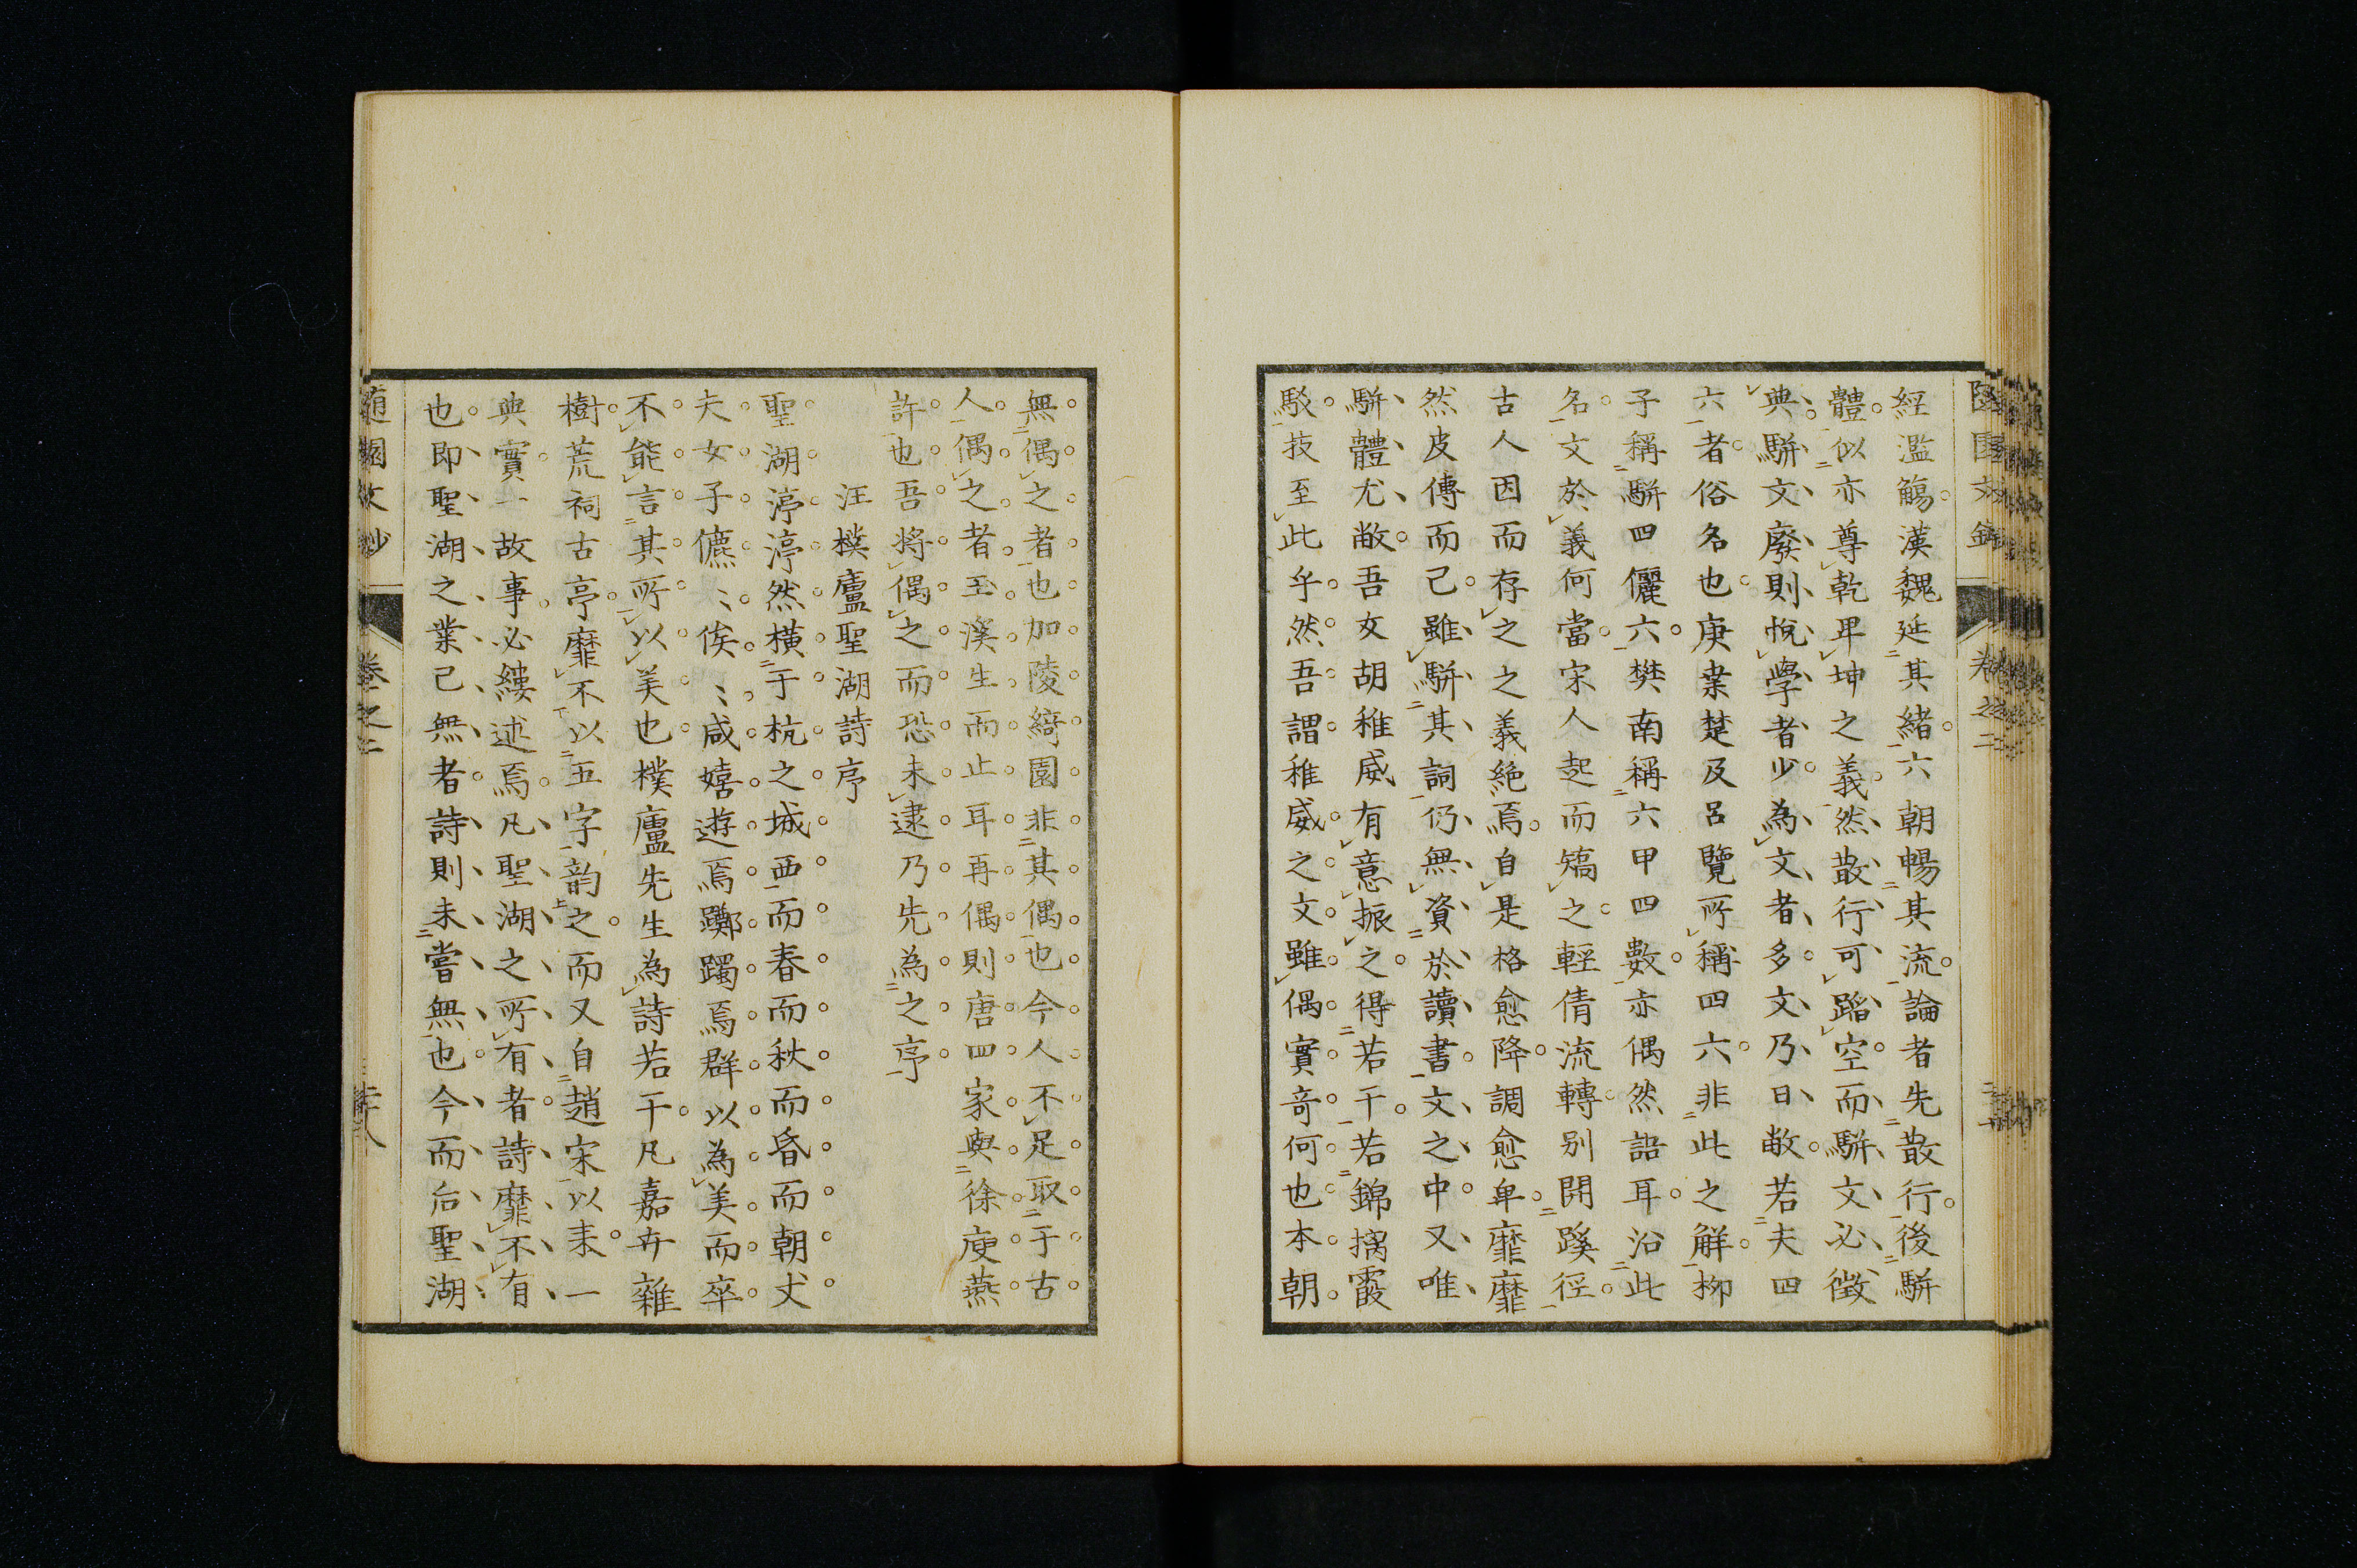 經濫觴漢魏延其緒六朝暢其流論者先散行後駢
體似亦尊乾卑坤之義然散行可蹈空而駢文必徵
典駢文廢則悅學者少為文者多文乃日敝若夫四
六者俗名也庚桑楚及呂覽所稱四六非此之解柳
子稱駢四儷六樊南稱六甲四數亦偶然語耳沿此
名文於義何當宋人起而矯之輕倩流轉別開蹊徑
古人因而存之之義絕焉自是格愈降調愈卑靡靡
然皮傅而已雖駢其詞仍無資於讀書文之中又唯
駢體尤敝吾友胡稚威有意振之得若干若錦摛霞
駁技至此乎然吾謂稚威之文雖偶實奇何也本朝
無偶之者也加陵綺園非其偶也今人不足取于古
人偶之者玉溪生而止耳再偶則唐四家與徐庾燕
許也吾將偶之而恐未逮乃先為之序
汪樸廬聖湖詩序
聖湖渟渟然橫于杭之城西而春而秋而昏而朝丈
夫女子儦〻俟〻咸嬉遊焉躑躅焉群以為美而卒
不能言其所以美也樸廬先生為詩若干凡嘉卉雜
樹荒祠古亭靡不以五字韵之而又自趙宋以來一
典實一故事必縷述焉凡聖湖之所有者詩靡不有
也即聖湖之業已無者詩則未嘗無也今而后聖湖
隨園文鈔 卷之二